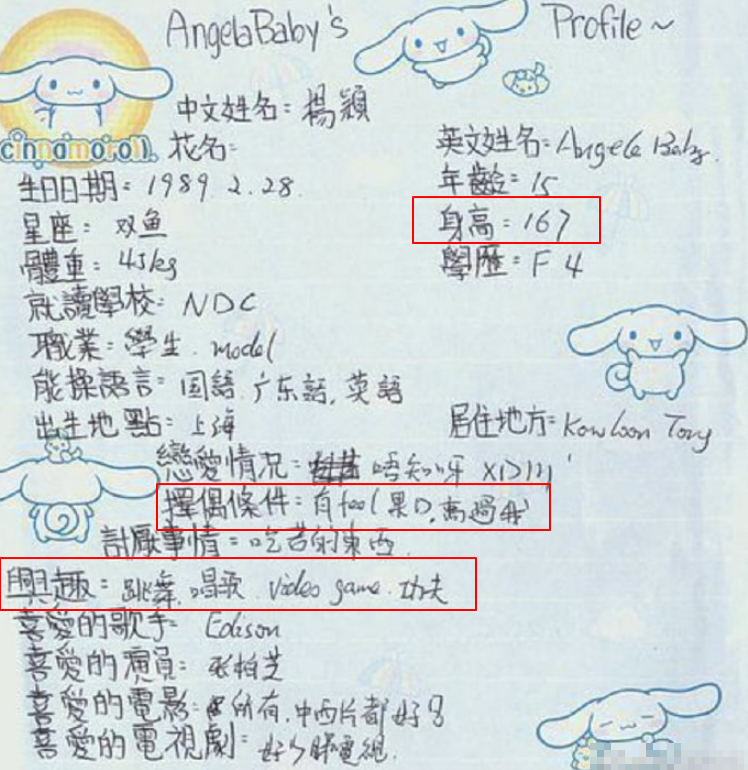 AngelaBaby's Profile~
中文姓名：楊穎
cinnamoroll
花名：
英文姓名：Angela Baby.
生日日期：1989.2.28
年齡：15
星座：双鱼
身高：167
體重：43kg
學歷：F 4
就讀學校：NDC
職業：學生. model
能操語言：国語. 广东話. 英語
出生地點：上海
居住地方：Kowloon Tong
戀愛情况：唔知呀 XD
擇偶條件：有feel果D. 高過我
討厭事情：吃苦的東西.
興趣：跳舞. 唱歌. video game. 功夫
喜愛的歌手：Edison
喜愛的演員：张柏芝
喜愛的電影：所有. 中西片都好多
喜愛的電視劇：好少睇電視.